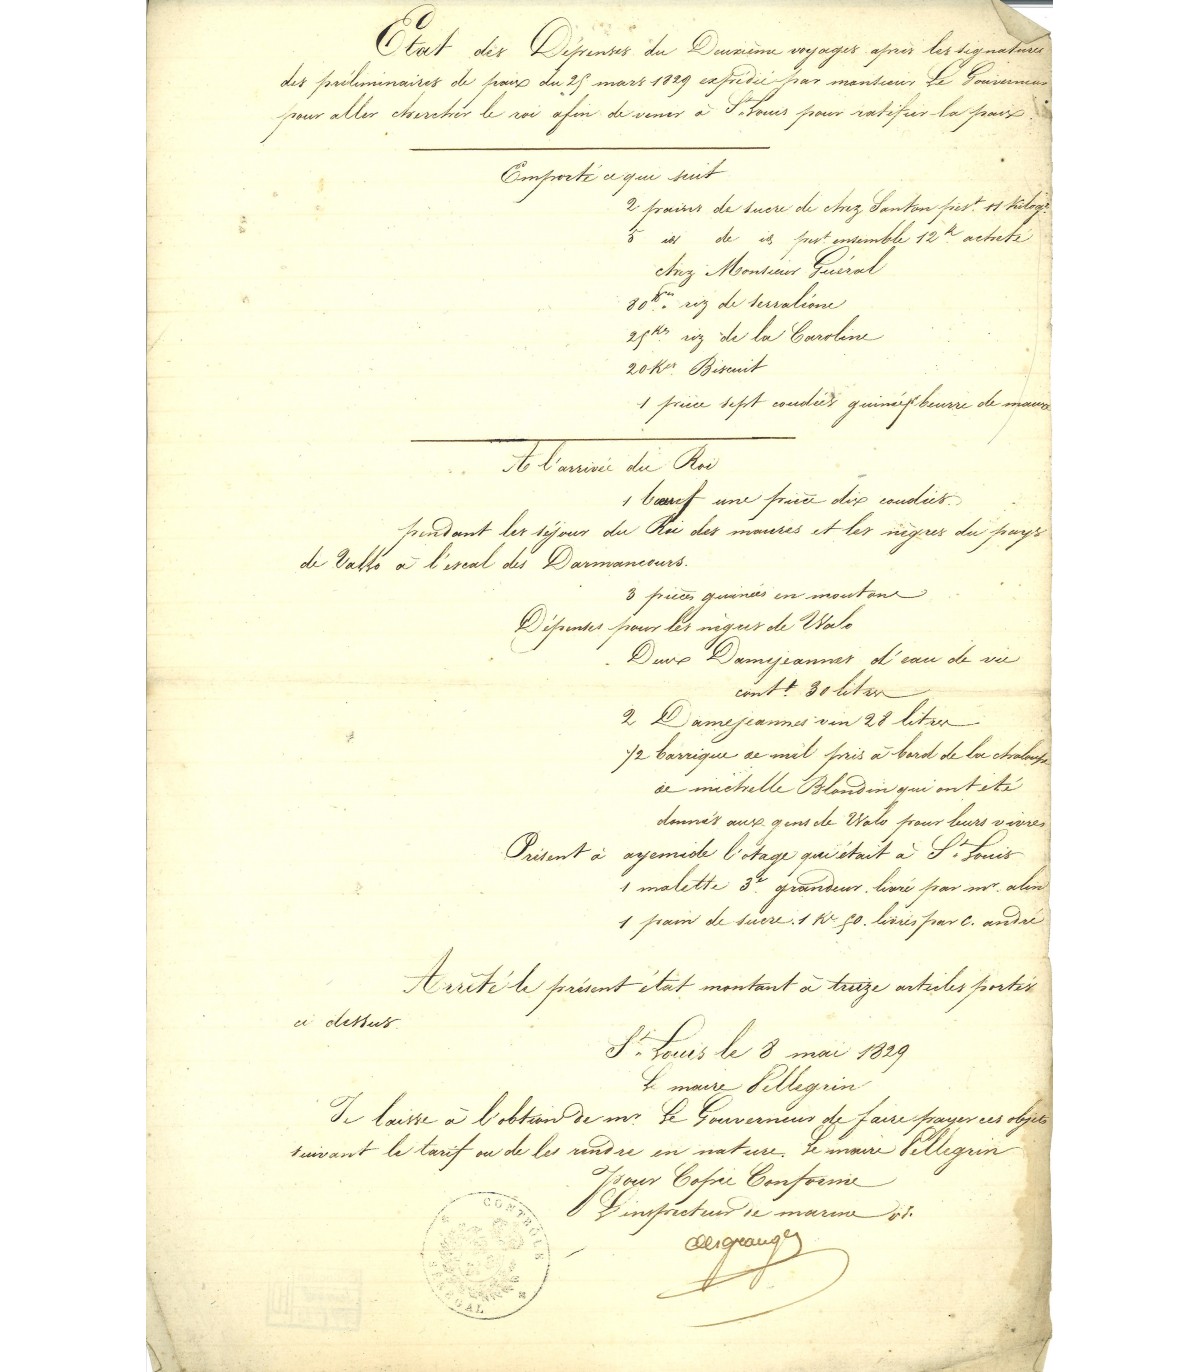 Etat des Dépenses du Deuxième voyages après les signatures
des préliminaires de paix du 25 mars 1829 expédié par monsieur Le Gouverneur
pour aller chercher le roi afin de venir à St. Louis pour ratifier la paix.
Emporté ce qui suit
2 pains de sucre de chez Santon pest. 11 kilogr.
5 id de id pest. ensemble 12 k. acheté
chez Monsieur Guéral
80 kes. riz de serralione
25 kes. riz de la Caroline
20 Kes. Biscuit
1 pièce sept coudées guinée pr. beurre de maure
A l'arrivée du Roi
1 bœuf une pièce dix coudées.
pendant les séjour du Roi des maures et les nègres du pays
de Vallo à l'escal des Darmancours.
3 pièces guinées en moutons
Dépenses pour les nègres de Walo
Deux Damejeannes d'eau de vie
contt. 30 litres
2 Damejeannes vin 28 litres
1/2 barrique de mil pris à bord de la chaloupe
de michelle Blondin qui ont été
donnés aux gens de Walo pour leurs vivres
Présent à ayemide l'otage qui était à St. Louis
1 malette 3e. grandeur. livré par mr. alin
1 pain de sucre. 1 Ke 50. livrés par C. andré
Arrêté le présent état montant à treize articles portés
ci dessus.
St. Louis le 8 mai 1829
Le maire Pellegrin
Je laisse à l'obtion de mr. Le Gouverneur de faire payer ces objets
suivant le tarif ou de les rendre en nature. Le maire Pellegrin
pour Copie Conforme
L'inspecteur de marine
desgranges
CONTROLE
SENEGAL